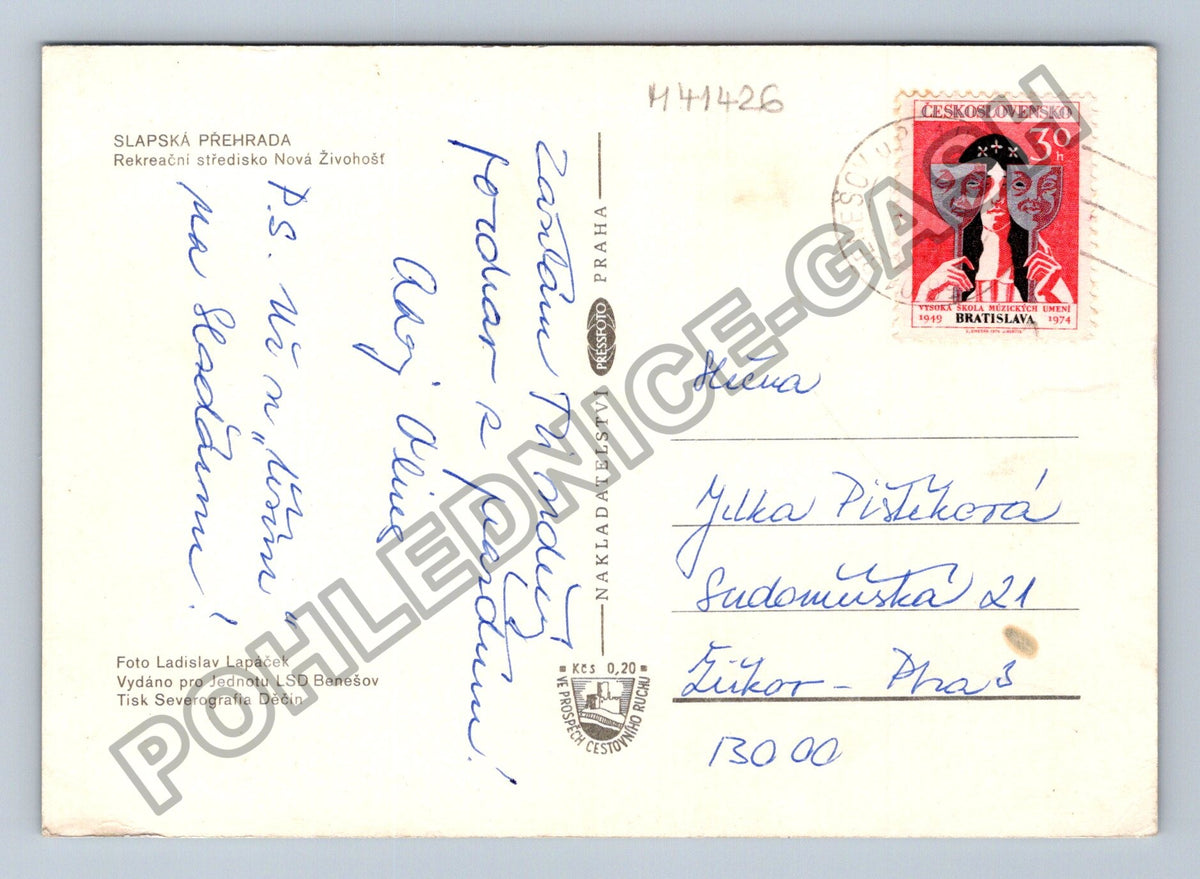 M41426
SLAPSKÁ PŘEHRADA
Rekreační středisko Nová Živohošť
Zasílám
pozdrav z prázdnin!
Ahoj
P.S. Už se „těším“
na
Foto Ladislav Lapáček
Vydáno pro Jednotu LSD Benešov
Tisk Severografia Děčín
NAKLADATELSTVÍ PRESSFOTO PRAHA
Kčs 0,20
VE PROSPĚCH CESTOVNÍHO RUCHU
ČESKOSLOVENSKO
30 h
VYSOKÁ ŠKOLA MÚZICKÝCH UMENÍ
1949 BRATISLAVA 1974
BENEŠOV U PR
Slečna
Jitka Pištěková
Sudoměřská 21
Žižkov - Praha 3
130 00
POHLEDNICE-GASH